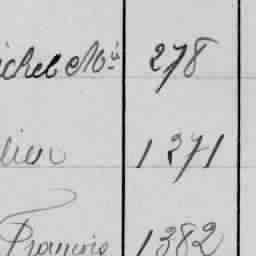 ichel Mis 278
lien 1271
François 1382